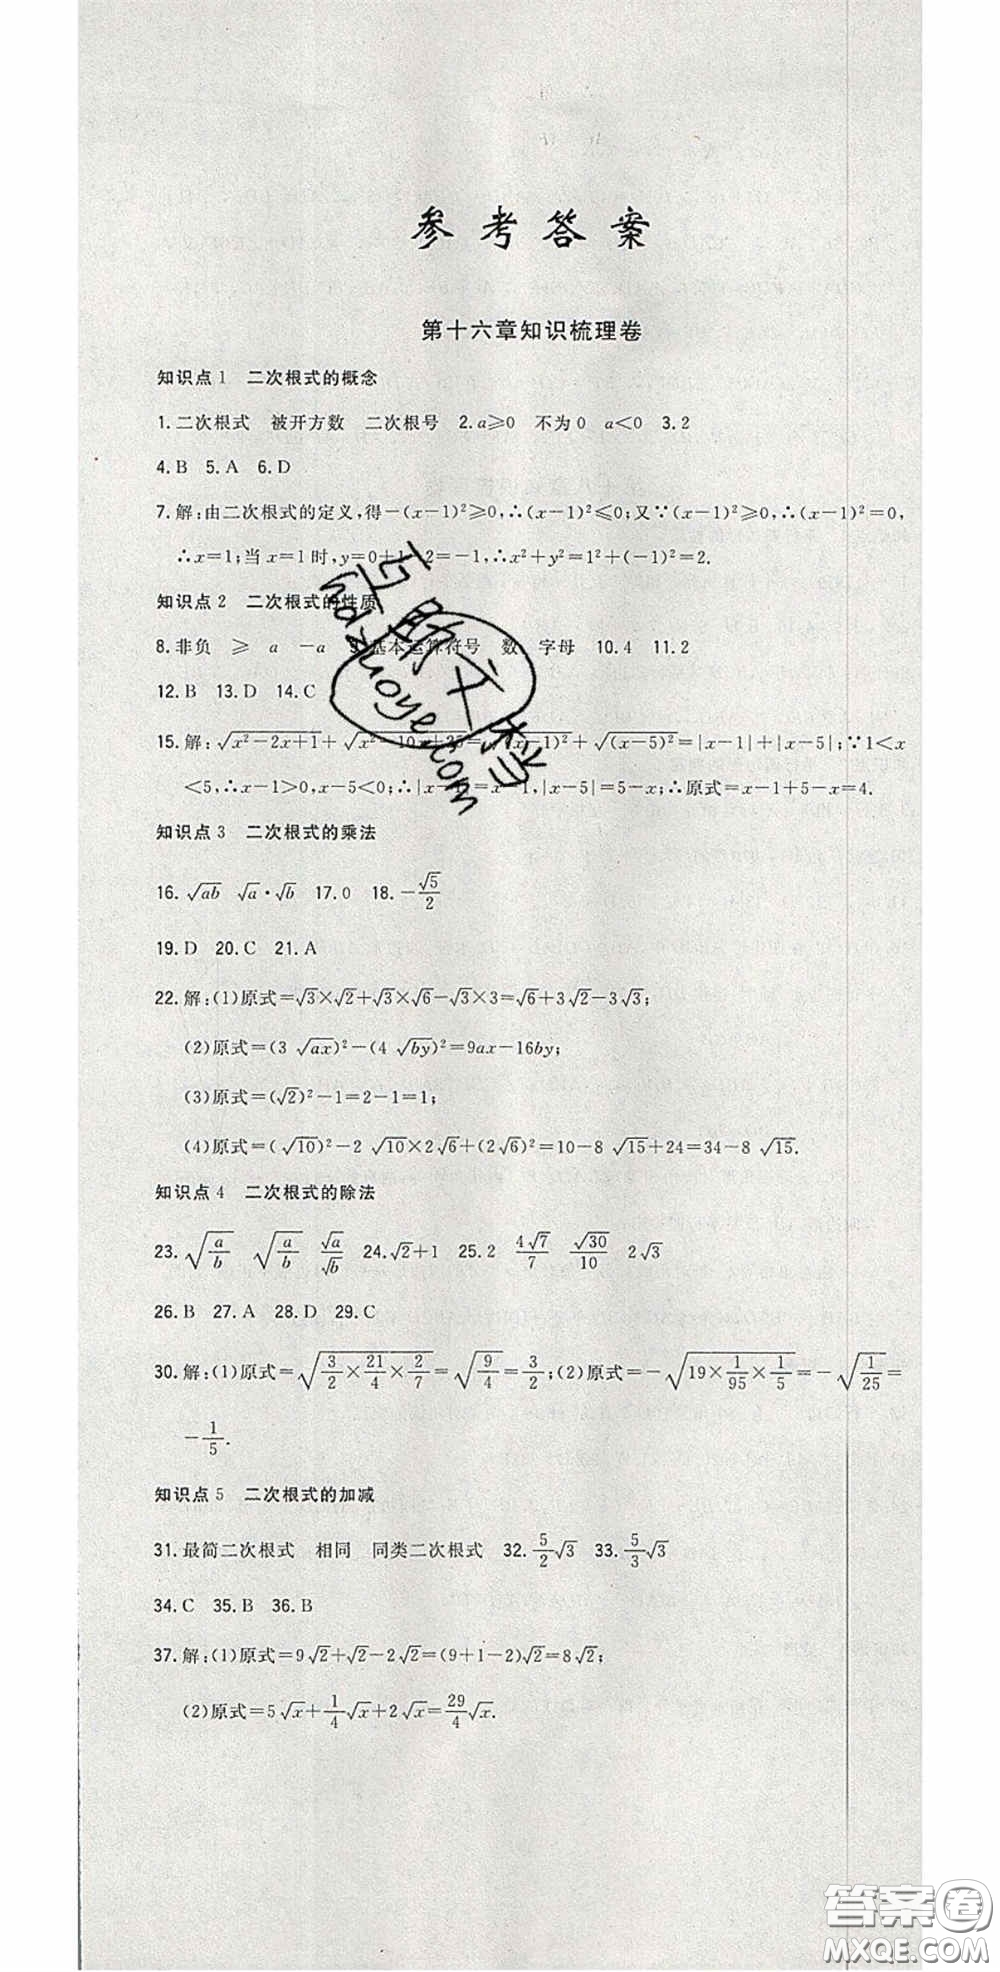 参考答案
第十六章知识梳理卷
知识点1 二次根式的概念
1.二次根式 被开方数 二次根号 2.a≥0 不为0 a<0 3.2
4.B 5.A 6.D
7.解:由二次根式的定义,得-(x-1)²≥0,∴(x-1)²≤0;又∵(x-1)²≥0,∴(x-1)²=0,
∴x=1;当x=1时,y=0+1-2=-1,∴x²+y²=1²+(-1)²=2.
知识点2 二次根式的性质
8.非负 ≥ a -a 9.基本运算符号 数 字母 10.4 11.2
12.B 13.D 14.C
15.解:√(x²-2x+1)+√(x²-10x+25)=√(x-1)²+√(x-5)²=|x-1|+|x-5|;∵1<x
<5,∴x-1>0,x-5<0;∴|x-1|=x-1,|x-5|=5-x;∴原式=x-1+5-x=4.
知识点3 二次根式的乘法
16.√ab √a·√b 17.0 18.-√5/2
19.D 20.C 21.A
22.解:(1)原式=√3×√2+√3×√6-√3×3=√6+3√2-3√3;
(2)原式=(3√ax)²-(4√by)²=9ax-16by;
(3)原式=(√2)²-1=2-1=1;
(4)原式=(√10)²-2√10×2√6+(2√6)²=10-8√15+24=34-8√15.
知识点4 二次根式的除法
23.√(a/b) √(a/b) √a/√b 24.√2+1 25.2 4√7/7 √30/10 2√3
26.B 27.A 28.D 29.C
30.解:(1)原式=√(3/2×21/4×2/7)=√(9/4)=3/2;(2)原式=-√(19×1/95×1/5)=-√(1/25)=
-1/5.
知识点5 二次根式的加减
31.最简二次根式 相同 同类二次根式 32.5/2√3 33.5/3√3
34.C 35.B 36.B
37.解:(1)原式=9√2+√2-2√2=(9+1-2)√2=8√2;
(2)原式=5√x+1/4√x+2√x=29/4√x.
互助文档
hdzuoye.com
答案卷
MXQE.COM